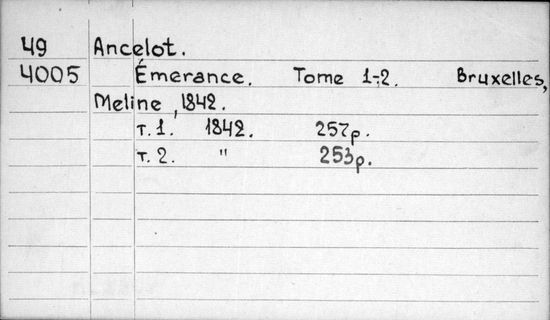 49 Ancelot.
4005 Émerance. Tome 1-2. Bruxelles,
Meline, 1842.
т. 1. 1842. 257p.
т. 2. " 253p.